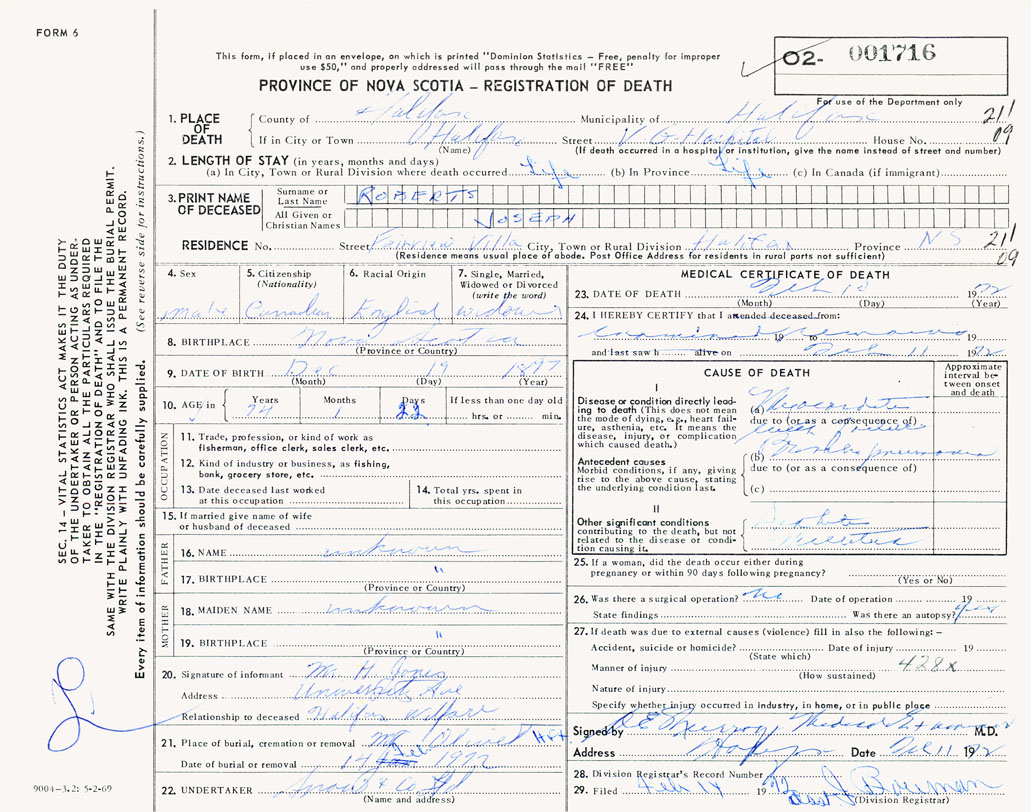 FORM 6
This form, if placed in an envelope, on which is printed "Dominion Statistics – Free, penalty for improper
use $50," and properly addressed will pass through the mail "FREE"
O2- 001716
For use of the Department only
PROVINCE OF NOVA SCOTIA – REGISTRATION OF DEATH
1. PLACE OF DEATH
County of Halifax Municipality of Halifax 211
If in City or Town Halifax Street V G Hospital House No. 09
(Name) (If death occurred in a hospital or institution, give the name instead of street and number)
2. LENGTH OF STAY (in years, months and days)
(a) In City, Town or Rural Division where death occurred Life (b) In Province Life (c) In Canada (if immigrant)
3. PRINT NAME OF DECEASED
Surname or Last Name ROBERTS
All Given or Christian Names JOSEPH
RESIDENCE No. Street Fairview Villa City, Town or Rural Division Halifax Province NS 211
(Residence means usual place of abode. Post Office Address for residents in rural parts not sufficient) 09
4. Sex male
5. Citizenship (Nationality) Canadian
6. Racial Origin English
7. Single, Married, Widowed or Divorced (write the word) widower
8. BIRTHPLACE Nova Scotia
(Province or Country)
9. DATE OF BIRTH Dec 19 1897
(Month) (Day) (Year)
10. AGE in Years 74 Months 1 Days 22 If less than one day old
hrs. or min.
OCCUPATION
11. Trade, profession, or kind of work as
fisherman, office clerk, sales clerk, etc.
12. Kind of industry or business, as fishing,
bank, grocery store, etc.
13. Date deceased last worked
at this occupation
14. Total yrs. spent in
this occupation
15. If married give name of wife
or husband of deceased
FATHER
16. NAME unknown
17. BIRTHPLACE "
(Province or Country)
MOTHER
18. MAIDEN NAME unknown
19. BIRTHPLACE "
(Province or Country)
20. Signature of informant Mr. H. Jones
Address University Ave
Relationship to deceased Halifax Welfare
21. Place of burial, cremation or removal Mt Olivet Hfx
Date of burial or removal 14 Feb 1972
22. UNDERTAKER Snow & Co Ltd
(Name and address)
MEDICAL CERTIFICATE OF DEATH
23. DATE OF DEATH Feb 10 1972
(Month) (Day) (Year)
24. I HEREBY CERTIFY that I attended deceased from:
19 to 19
and last saw h alive on Feb 11 1972
CAUSE OF DEATH
Approximate interval between onset and death
I
Disease or condition directly lead-
ing to death (This does not mean
the mode of dying, e.g., heart fail-
ure, asthenia, etc. It means the
disease, injury, or complication
which caused death.)
(a) Myocarditis
due to (or as a consequence of)
Antecedent causes
Morbid conditions, if any, giving
rise to the above cause, stating
the underlying condition last.
(b) pneumonia
due to (or as a consequence of)
(c)
II
Other significant conditions
contributing to the death, but not
related to the disease or condi-
tion causing it.
25. If a woman, did the death occur either during
pregnancy or within 90 days following pregnancy?
(Yes or No)
26. Was there a surgical operation? no Date of operation 19
State findings Was there an autopsy? yes
27. If death was due to external causes (violence) fill in also the following: –
Accident, suicide or homicide? Date of injury 19
(State which)
Manner of injury 428x
(How sustained)
Nature of injury
Specify whether injury occurred in industry, in home, or in public place
Signed by Medical Examiner M.D.
Address Halifax Date Feb 11 1972
28. Division Registrar's Record Number
29. Filed Feb 14 1972
(Division Registrar)
SEC. 14 – VITAL STATISTICS ACT MAKES IT THE DUTY
OF THE UNDERTAKER OR PERSON ACTING AS UNDER-
TAKER TO OBTAIN ALL THE PARTICULARS REQUIRED
IN THE "REGISTRATION OF DEATH" AND TO FILE THE
SAME WITH THE DIVISION REGISTRAR WHO SHALL ISSUE THE BURIAL PERMIT.
WRITE PLAINLY WITH UNFADING INK. THIS IS A PERMANENT RECORD.
Every item of information should be carefully supplied. (See reverse side for instructions.)
9004–3.2: 5-2-69